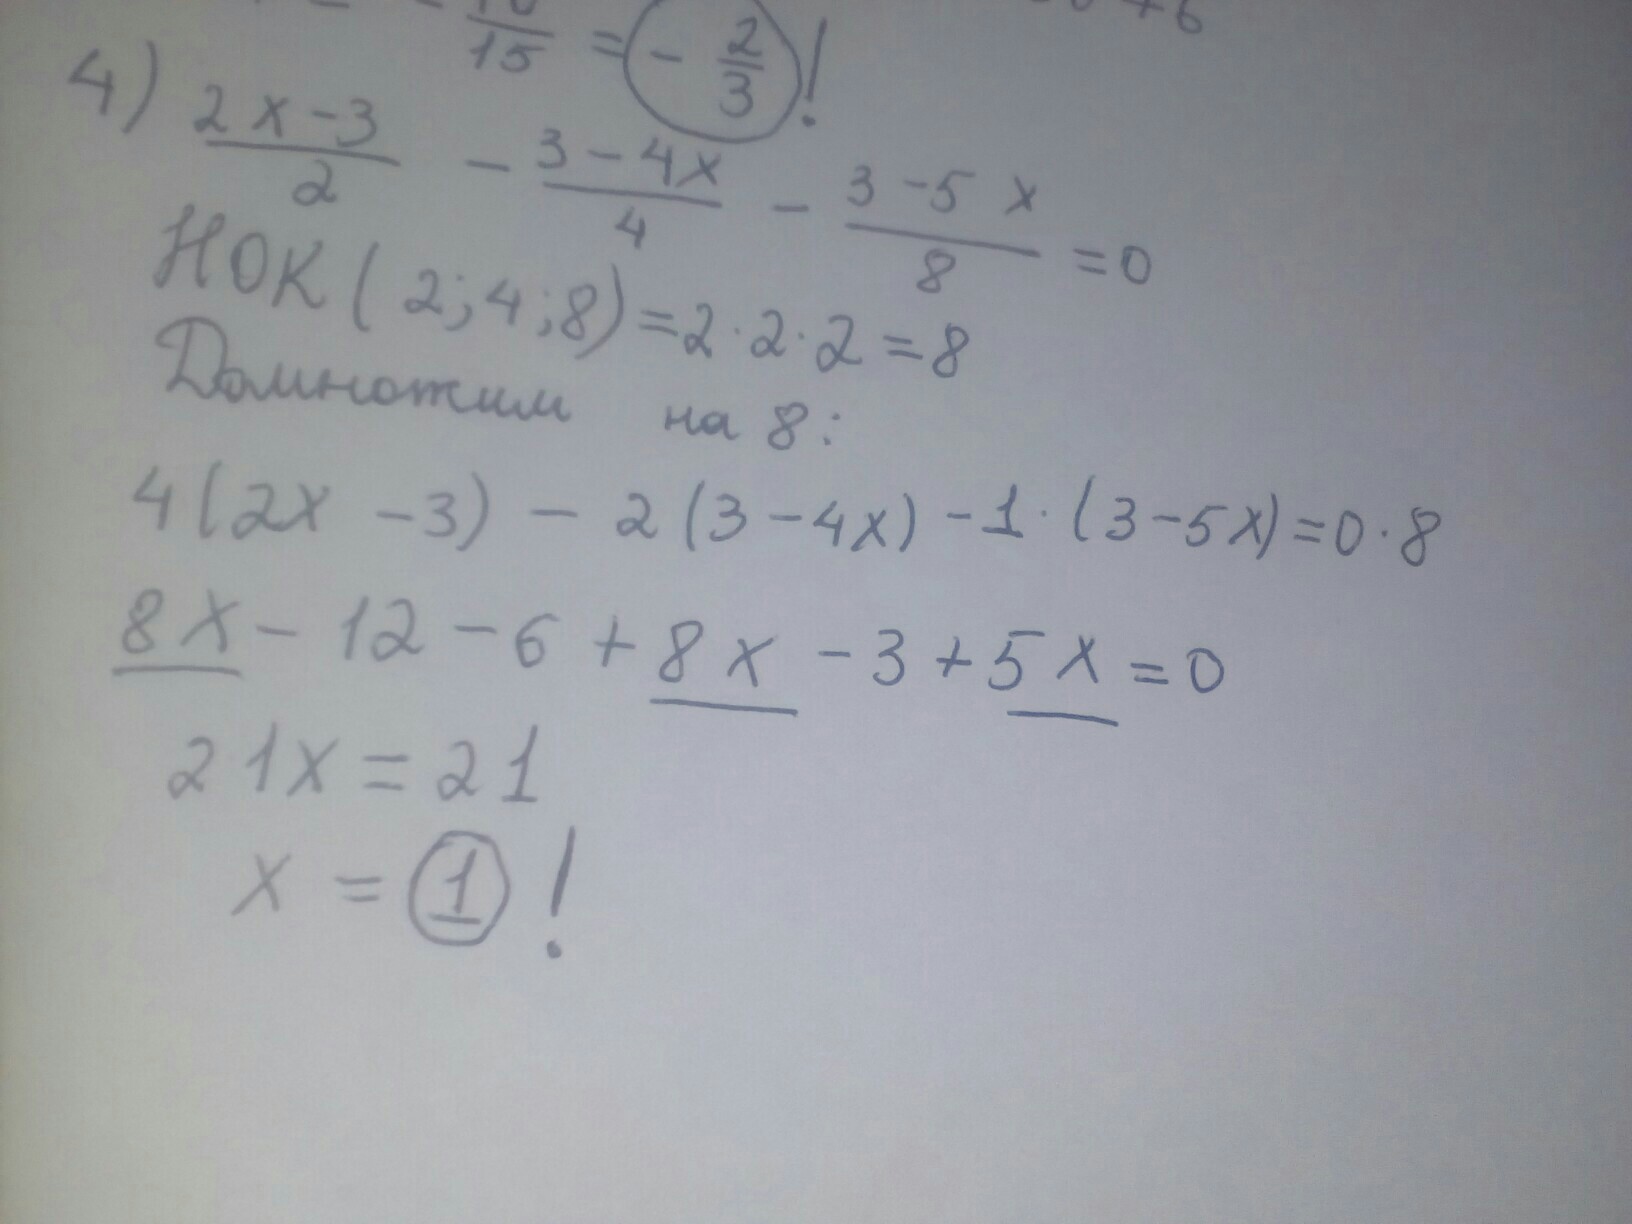 15 = - 2/3 !
4) (2x-3)/2 - (3-4x)/4 - (3-5x)/8 =0
НОК (2;4;8)=2·2·2=8
Домножим на 8:
4(2x-3) - 2(3-4x) -1·(3-5x)=0·8
8x-12-6+8x-3+5x=0
21x=21
x = 1 !